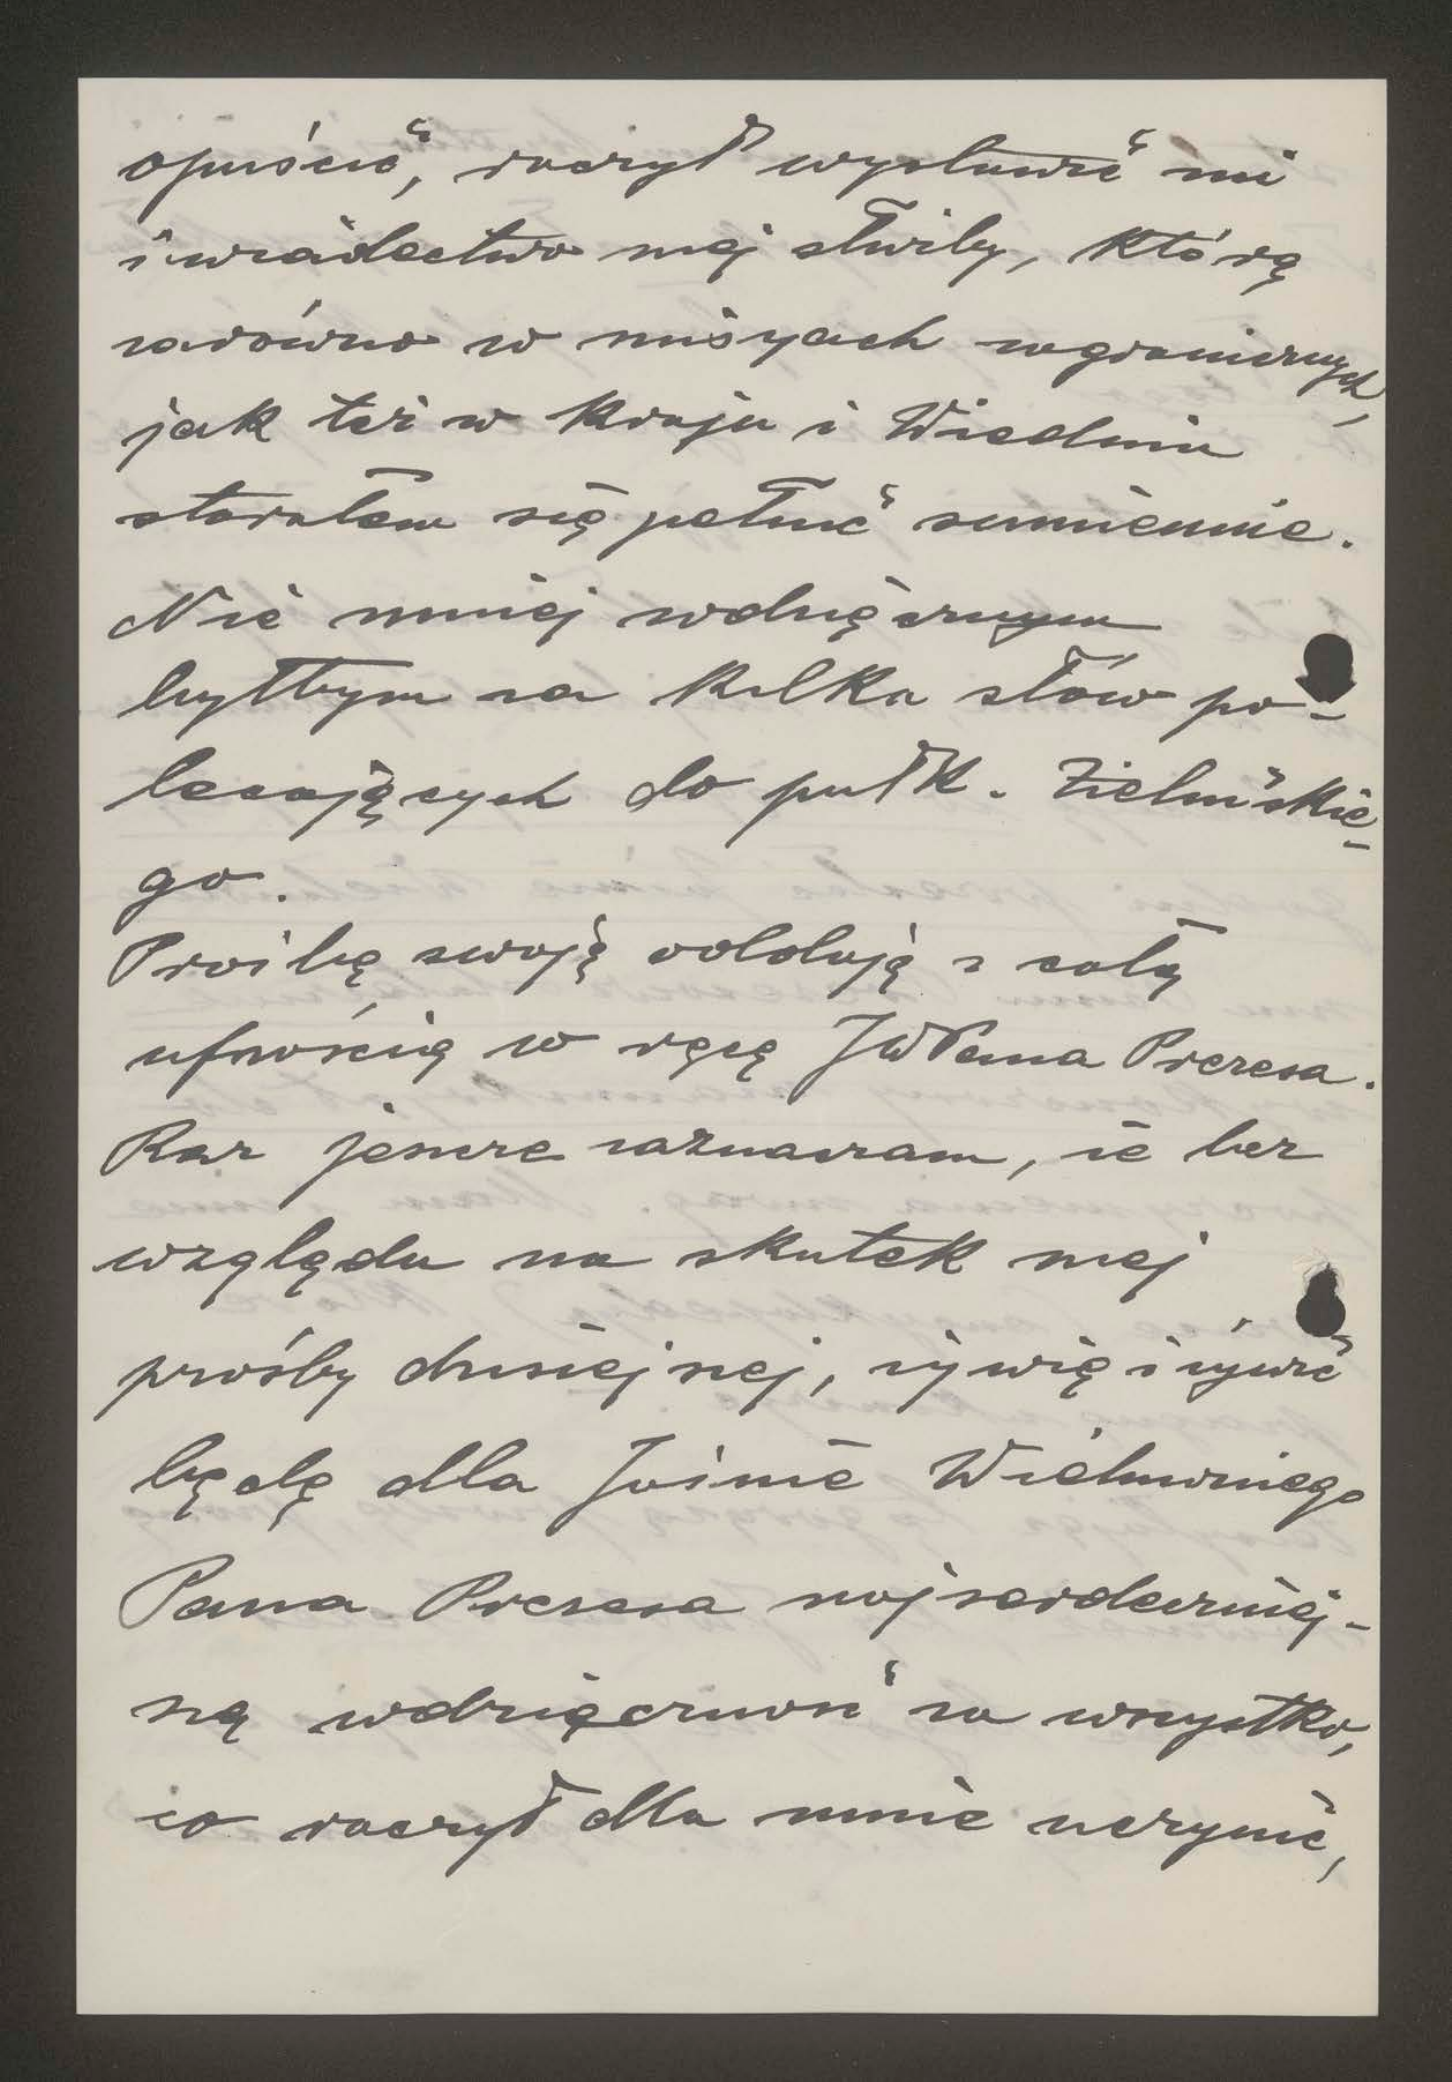 opuścić, raczył wystawić mi
świadectwo mej służby, którą
zarówno w misyach zagranicznych,
jak też w kraju i Wiedniu
starałem się pełnić sumiennie.
Nie mniej wdzięcznym
byłbym za kilka słów po-
lecających do pułk. Zielińskie-
go.
Prośbę swoją oddaję z całą
ufnością w ręce JWPana Prezesa.
Raz jeszcze zaznaczam, że bez
względu na skutek mej
prośby dzisiejszej, żywię i żywić
będę dla Jaśnie Wielmożnego
Pana Prezesa najserdeczniej-
szą wdzięczność za wszystko,
co raczył dla mnie uczynić,